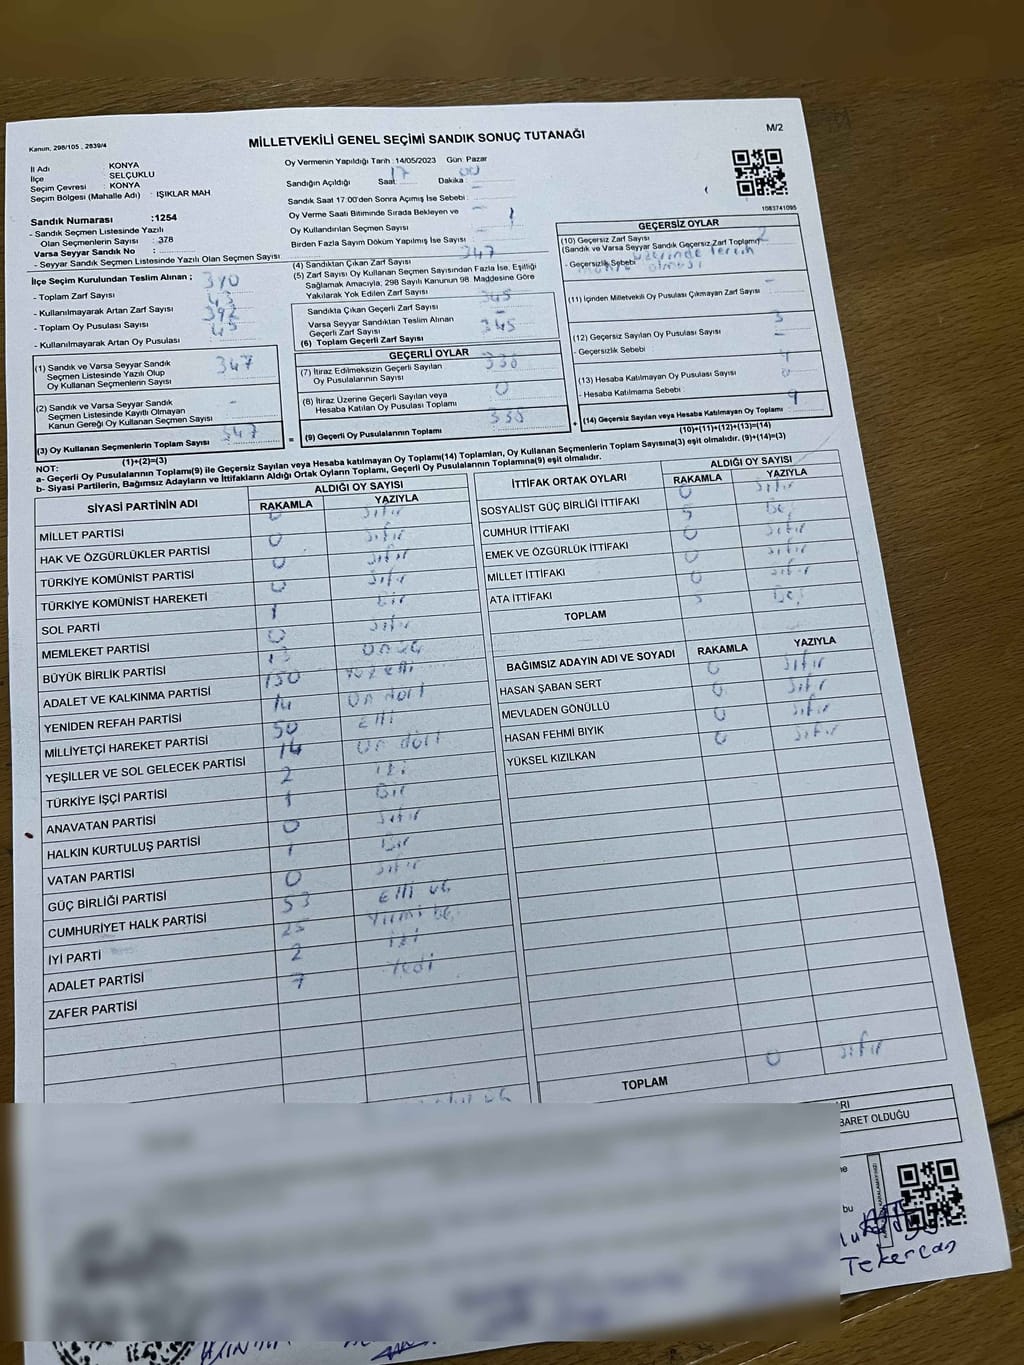 Kanun, 298/105 , 2839/4
MİLLETVEKİLİ GENEL SEÇİMİ SANDIK SONUÇ TUTANAĞI
M/2
İl Adı KONYA
İlçe SELÇUKLU
Seçim Çevresi : KONYA
Seçim Bölgesi (Mahalle Adı) : IŞIKLAR MAH
Sandık Numarası :1254
- Sandık Seçmen Listesinde Yazılı
Olan Seçmenlerin Sayısı : 378
Varsa Seyyar Sandık No :
- Seyyar Sandık Seçmen Listesinde Yazılı Olan Seçmen Sayısı
Oy Vermenin Yapıldığı Tarih : 14/05/2023 Gün: Pazar
Sandığın Açıldığı Saat: 17 Dakika: 00
Sandık Saat 17:00'den Sonra Açılmış İse Sebebi : -
Oy Verme Saati Bitiminde Sırada Bekleyen ve
Oy Kullandırılan Seçmen Sayısı -
Birden Fazla Sayım Döküm Yapılmış İse Sayısı -
1083741095
İlçe Seçim Kurulundan Teslim Alınan :
- Toplam Zarf Sayısı 390
- Kullanılmayarak Artan Zarf Sayısı 43
- Toplam Oy Pusulası Sayısı 392
- Kullanılmayarak Artan Oy Pusulası 45
(1) Sandık ve Varsa Seyyar Sandık
Seçmen Listesinde Yazılı Olup
Oy Kullanan Seçmenlerin Sayısı 347
(2) Sandık ve Varsa Seyyar Sandık
Seçmen Listesinde Kayıtlı Olmayan
Kanun Gereği Oy Kullanan Seçmen Sayısı -
(3) Oy Kullanan Seçmenlerin Toplam Sayısı 347
(1)+(2)=(3)
(4) Sandıktan Çıkan Zarf Sayısı 347
(5) Zarf Sayısı Oy Kullanan Seçmen Sayısından Fazla İse, Eşitliği
Sağlamak Amacıyla, 298 Sayılı Kanunun 98. Maddesine Göre
Yakılarak Yok Edilen Zarf Sayısı
Sandıkta Çıkan Geçerli Zarf Sayısı 345
Varsa Seyyar Sandıktan Teslim Alınan
Geçerli Zarf Sayısı -
(6) Toplam Geçerli Zarf Sayısı 345
GEÇERLİ OYLAR
(7) İtiraz Edilmeksizin Geçerli Sayılan
Oy Pusulalarının Sayısı 338
(8) İtiraz Üzerine Geçerli Sayılan veya
Hesaba Katılan Oy Pusulası Toplamı 0
= (9) Geçerli Oy Pusulalarının Toplamı 338 +
GEÇERSİZ OYLAR
(10) Geçersiz Zarf Sayısı 2
(Sandık ve Varsa Seyyar Sandık Geçersiz Zarf Toplamı)
- Geçersizlik Sebebi üzerinde tercih
olması
(11) İçinden Milletvekili Oy Pusulası Çıkmayan Zarf Sayısı -
(12) Geçersiz Sayılan Oy Pusulası Sayısı 3
- Geçersizlik Sebebi -
(13) Hesaba Katılmayan Oy Pusulası Sayısı 4
- Hesaba Katılmama Sebebi
(14) Geçersiz Sayılan veya Hesaba Katılmayan Oy Toplamı 9
(10)+(11)+(12)+(13)=(14)
NOT:
a- Geçerli Oy Pusulalarının Toplamı(9) ile Geçersiz Sayılan veya Hesaba katılmayan Oy Toplamı(14) Toplamları, Oy Kullanan Seçmenlerin Toplam Sayısına(3) eşit olmalıdır. (9)+(14)=(3)
b- Siyasi Partilerin, Bağımsız Adayların ve İttifakların Aldığı Ortak Oyların Toplamı, Geçerli Oy Pusulalarının Toplamına(9) eşit olmalıdır.
SİYASİ PARTİNİN ADI ALDIĞI OY SAYISI
RAKAMLA YAZIYLA
MİLLET PARTİSİ 0 sıfır
HAK VE ÖZGÜRLÜKLER PARTİSİ 0 sıfır
TÜRKİYE KOMÜNİST PARTİSİ 0 sıfır
TÜRKİYE KOMÜNİST HAREKETİ 0 sıfır
SOL PARTİ 1 Bir
MEMLEKET PARTİSİ 0 sıfır
BÜYÜK BİRLİK PARTİSİ 13 on üç
ADALET VE KALKINMA PARTİSİ 150 yüz elli
YENİDEN REFAH PARTİSİ 14 on dört
MİLLİYETÇİ HAREKET PARTİSİ 50 Elli
YEŞİLLER VE SOL GELECEK PARTİSİ 14 on dört
TÜRKİYE İŞÇİ PARTİSİ 2 iki
ANAVATAN PARTİSİ 1 Bir
HALKIN KURTULUŞ PARTİSİ 0 sıfır
VATAN PARTİSİ 1 Bir
GÜÇ BİRLİĞİ PARTİSİ 0 sıfır
CUMHURİYET HALK PARTİSİ 53 Elli üç
İYİ PARTİ 25 Yirmi beş
ADALET PARTİSİ 2 iki
ZAFER PARTİSİ 7 Yedi
İTTİFAK ORTAK OYLARI ALDIĞI OY SAYISI
RAKAMLA YAZIYLA
SOSYALİST GÜÇ BİRLİĞİ İTTİFAKI 0 sıfır
CUMHUR İTTİFAKI 5 Beş
EMEK VE ÖZGÜRLÜK İTTİFAKI 0 sıfır
MİLLET İTTİFAKI 0 sıfır
ATA İTTİFAKI 0 sıfır
TOPLAM 5 Beş
BAĞIMSIZ ADAYIN ADI VE SOYADI RAKAMLA YAZIYLA
HASAN ŞABAN SERT 0 sıfır
MEVLADEN GÖNÜLLÜ 0 sıfır
HASAN FEHMİ BIYIK 0 sıfır
YÜKSEL KIZILKAN 0 sıfır
TOPLAM 0 sıfır
BARET OLDUĞU
bu
Tekercan